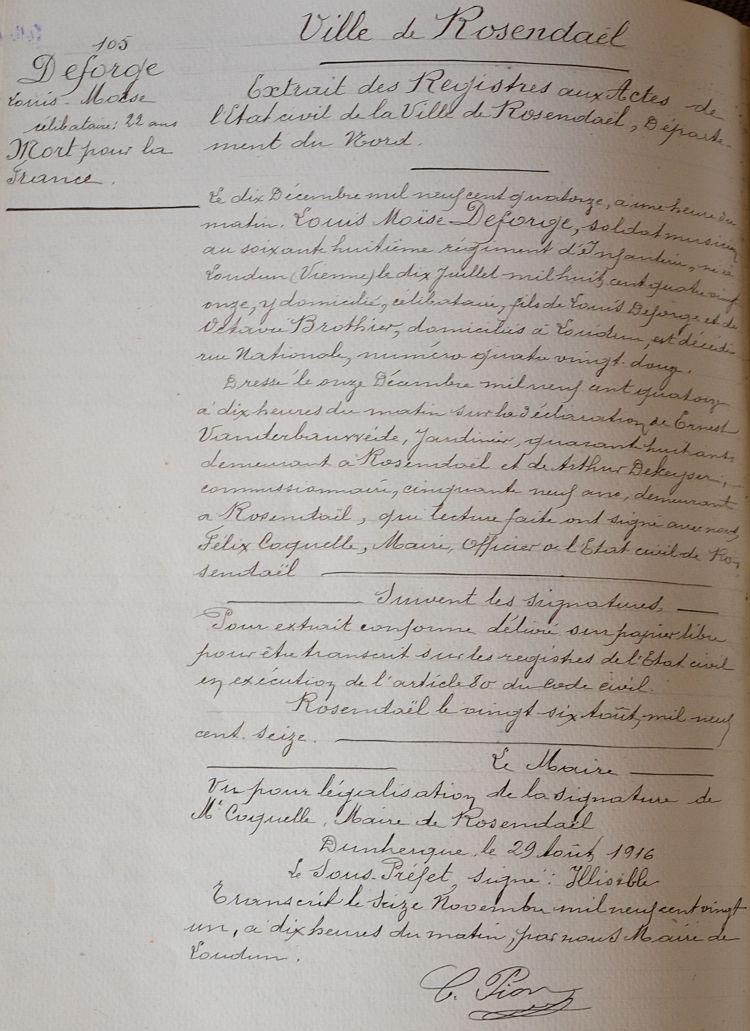 105
Deforge
Louis-Moïse
célibataire; 22 ans
Mort pour la
France.
Ville de Rosendaël
Extrait des Registres aux Actes de
l'Etat civil de la Ville de Rosendaël, Départe-
ment du Nord.
Le dix Décembre mil neuf cent quatorze, à une heure du
matin. Louis Moïse Deforge, soldat musicien
au soixant huitième régiment d'Infanterie, né à
Loudun (Vienne) le dix Juillet mil huit cent quatre vingt
onze, y domicilié, célibataire, fils de Louis Deforge et de
Octavie Brothier, domiciliés à Loudun, est décédé
rue Nationale, numéro quatre vingt douze.
Dressé le onze Décembre mil neuf cent quatorze
à dix heures du matin sur la déclaration de Ernest
Vanderbauwède, Jardinier, quarant huit ans,
demeurant à Rosendaël et de Arthur Dekeyser,
commissionnaire, cinquante neuf ans, demeurant
à Rosendaël, qui lecture faite ont signé avec nous,
Félix Coquelle, Maire, Officier de l'Etat civil de Ro-
sendaël
Suivent les signatures,
Pour extrait conforme délivré sur papier libre
pour être transcrit sur les registres de l'Etat civil
en exécution de l'article 80 du code civil.
Rosendaël le vingt six Août, mil neuf
cent seize.
Le Maire
Vu pour légalisation de la signature de
Mr Coquelle, Maire de Rosendaël
Dunkerque, le 29 Août, 1916
Le Sous-Préfet, signé: Illisible
Transcrit le Seize Novembre mil neuf cent vingt
un, à dix heures du matin, par nous Maire de
Loudun.
C. Pion